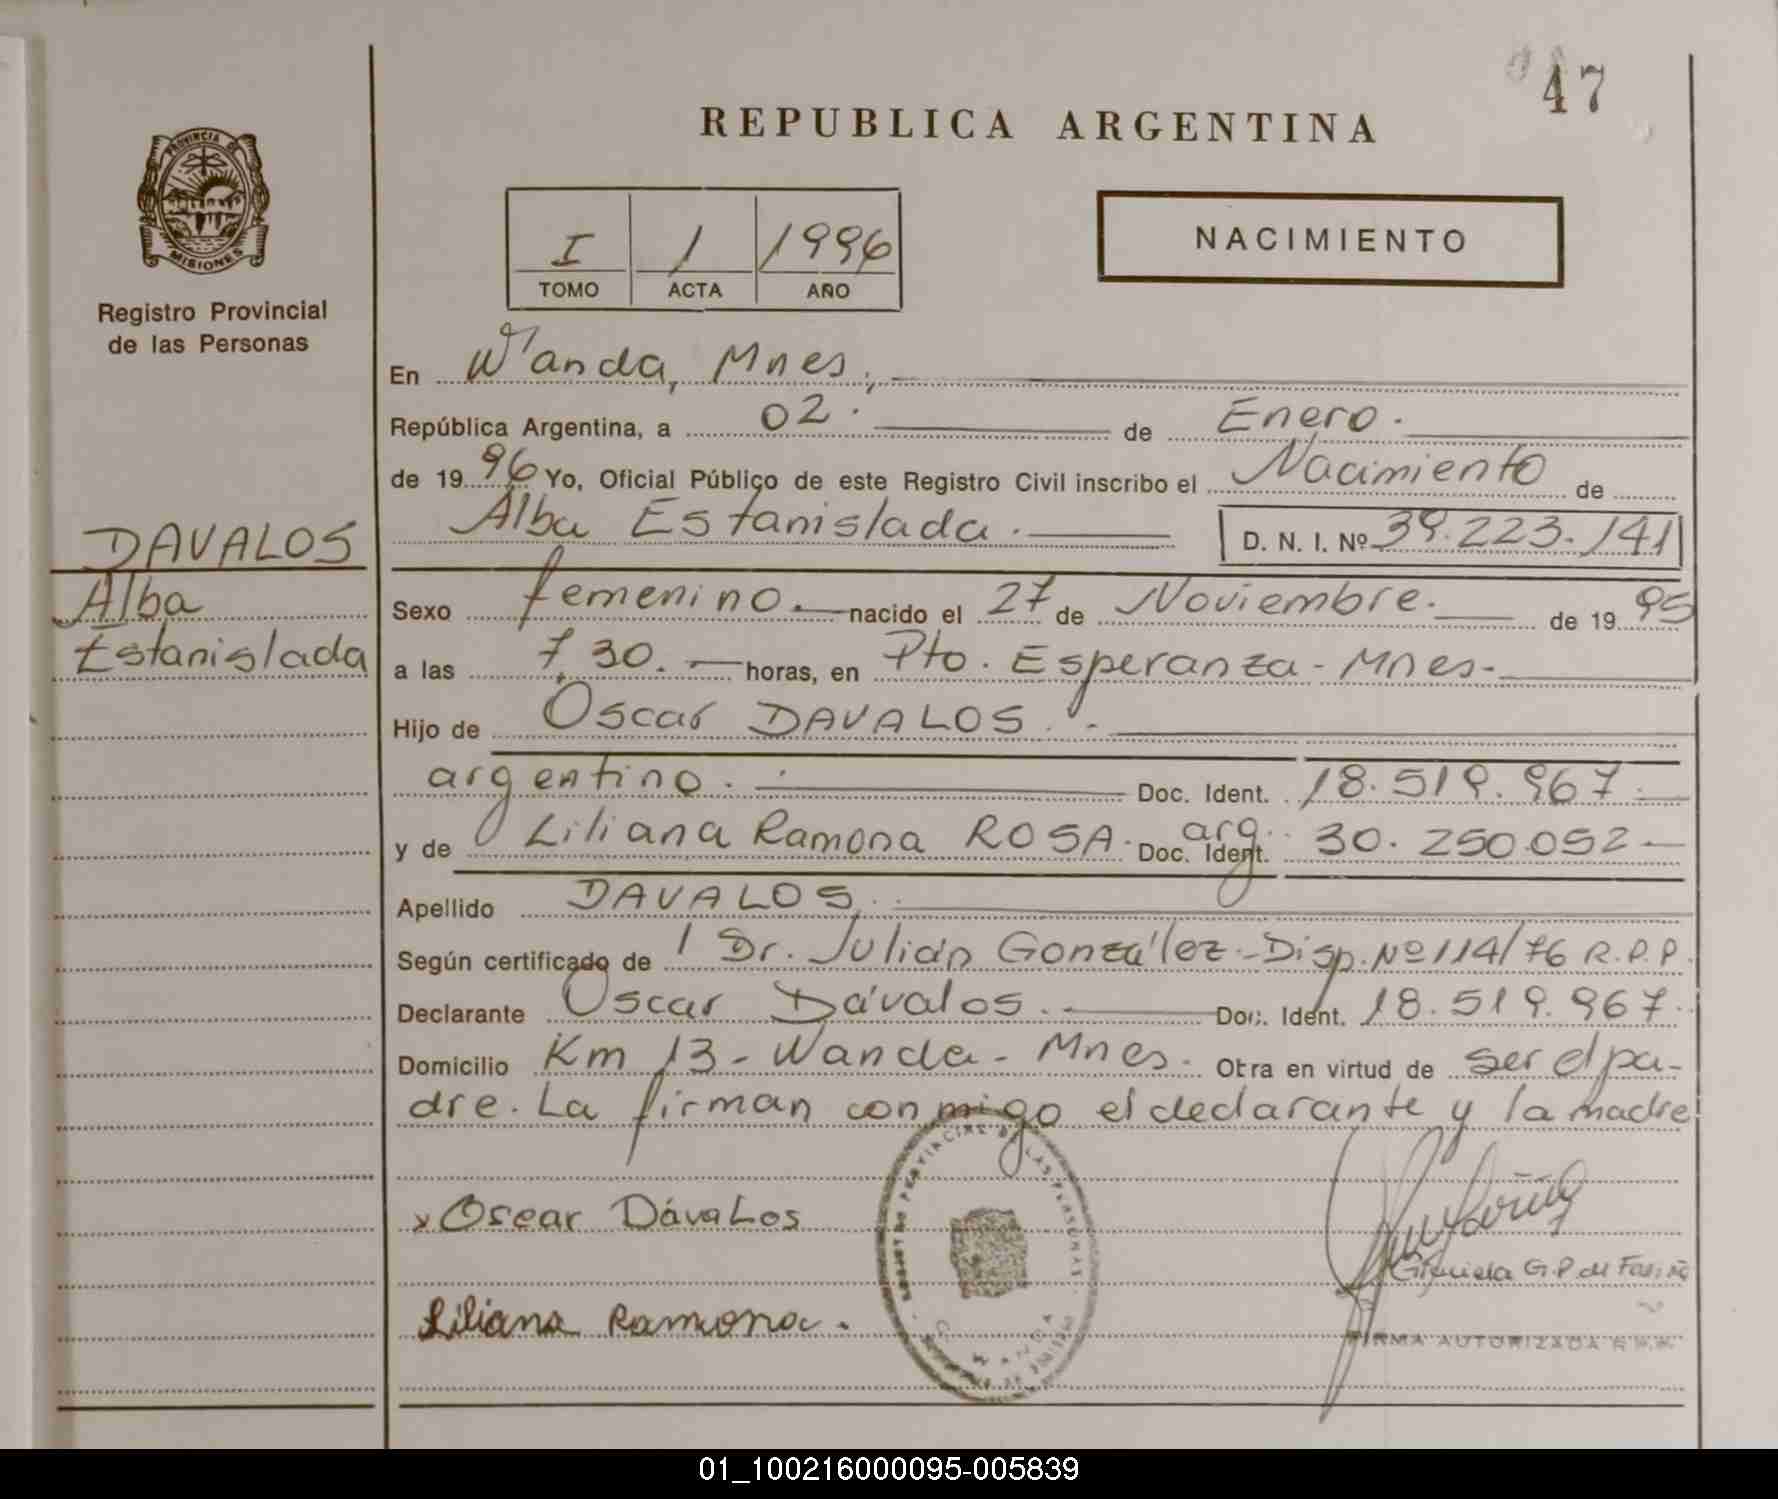 47
REPUBLICA ARGENTINA
PROVINCIA DE
MISIONES
Registro Provincial
de las Personas
I 1 1996
TOMO ACTA AÑO
NACIMIENTO
En Wanda, Mnes.,
República Argentina, a 02. de Enero.
de 1996 Yo, Oficial Público de este Registro Civil inscribo el Nacimiento de
Alba Estanislada. D. N. I. Nº 39.223.141
DAVALOS
Alba
Estanislada
Sexo femenino. nacido el 27 de Noviembre. de 1995
a las 7,30. horas, en Pto. Esperanza - Mnes-
Hijo de Oscar DAVALOS. -
argentino. Doc. Ident. 18.519.967.
y de Liliana Ramona ROSA. arg. Doc. Ident. 30.250.052
Apellido DAVALOS.
Según certificado de Dr. Julián González - Disp. Nº 114/76 R.P.P.
Declarante Oscar Dávalos. Doc. Ident. 18.519.967.
Domicilio Km 13 - Wanda - Mnes. Otra en virtud de ser el pa-
dre. La firman conmigo el declarante y la madre
x Oscar DávaLos
Liliana Ramona.
G.P. de
FIRMA AUTORIZADA
01_100216000095-005839